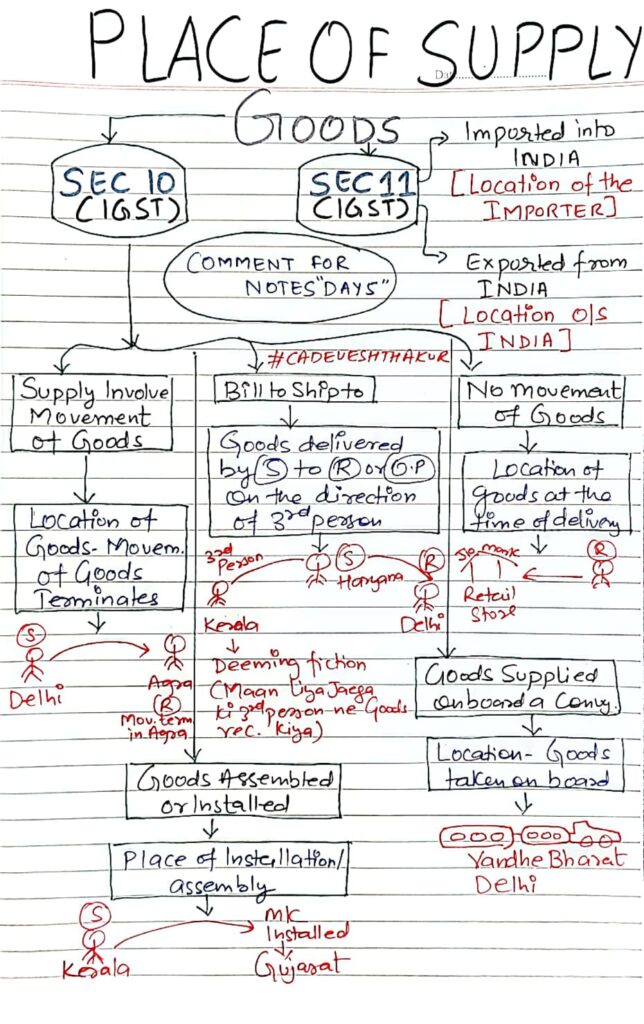 PLACE OF SUPPLY
GOODS
SEC 10
(IGST)
SEC 11
(IGST)
Imported into
INDIA
[Location of the
IMPORTER]
Exported from
INDIA
[Location o/s
INDIA]
COMMENT FOR
NOTES "DAYS"
#CADEVESHTHAKUR
Supply Involve
Movement
of Goods
Location of
Goods-Movem.
of Goods
Terminates
S
Delhi
Agra
R
Mov. term.
in Agra
Bill to Ship to
Goods delivered
by S to R or O.P
on the direction
of 3rd person
3rd
Person
S
R
Haryana
Kerala
Delhi
Deeming fiction
(Maan liya Jaega
ki 3rd person ne Goods
rec. kiya)
No movement
of Goods
Location of
goods at the
time of delivery
R
Retail
Store
Goods Supplied
onboard a Convy.
Location- Goods
taken on board
Vandhe Bharat
Delhi
Goods Assembled
or Installed
Place of Installation/
assembly
S
Kerala
m/c
Installed
Gujarat